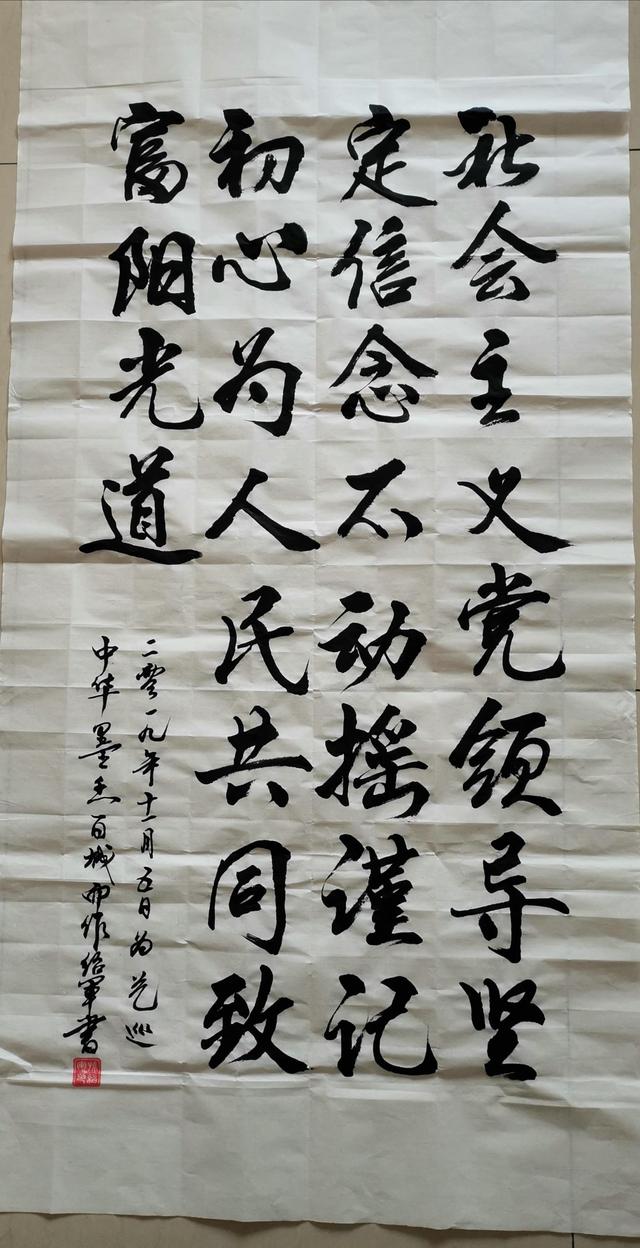 社会主义党领导坚
定信念不动摇谨记
初心为人民共同致
富阳光道
二零一九年十一月五日为艺巡
中华墨香百城而作绍军书